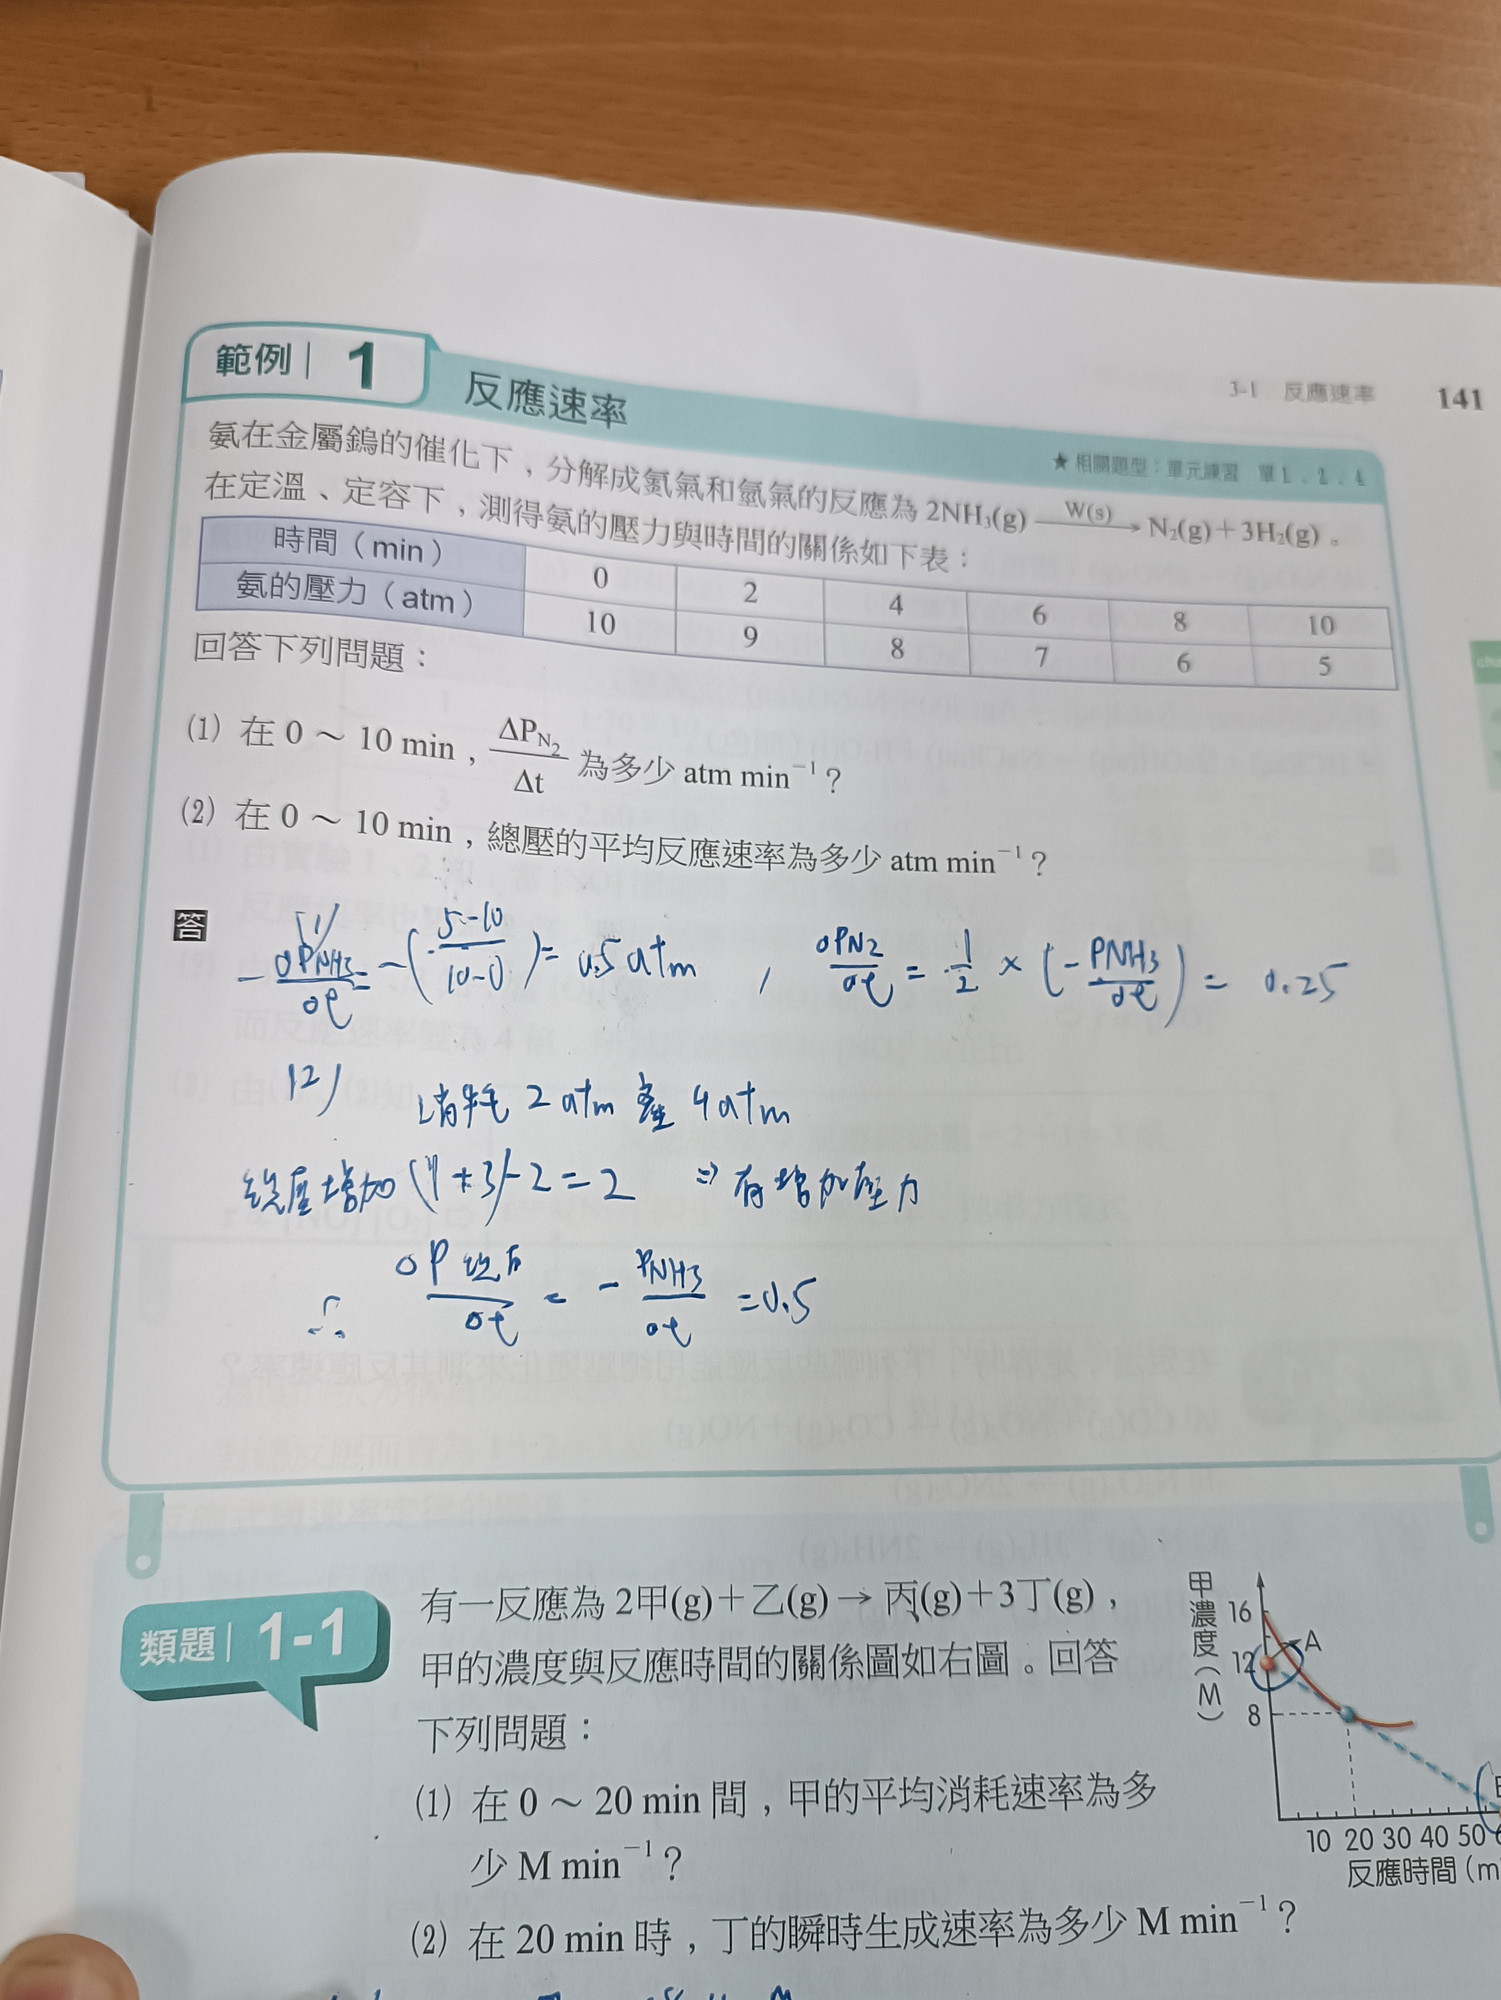 3-1 反應速率 141
範例 1 反應速率
★相關題型：單元練習 單1、2、4
氨在金屬鎢的催化下，分解成氮氣和氫氣的反應為 2NH₃(g) —W(s)→ N₂(g)＋3H₂(g)。
在定溫、定容下，測得氨的壓力與時間的關係如下表：
時間（min） 0 2 4 6 8 10
氨的壓力（atm） 10 9 8 7 6 5
回答下列問題：
(1) 在 0 ～ 10 min，ΔP_N₂/Δt 為多少 atm min⁻¹？
(2) 在 0 ～ 10 min，總壓的平均反應速率為多少 atm min⁻¹？
答
(1)
-ΔPNH₃/Δt = -(5-10/10-0) = 0.5 atm , ΔPN₂/Δt = 1/2 × (-PNH₃/Δt) = 0.25
(2) 消耗 2 atm 產 4 atm
總壓增加 (1+3)-2=2 ⇒ 有增加壓力
∴ ΔP總/Δt = -PNH₃/Δt = 0.5
類題 1-1
有一反應為 2甲(g)＋乙(g) → 丙(g)＋3丁(g)，
甲的濃度與反應時間的關係圖如右圖。回答
下列問題：
(1) 在 0 ～ 20 min 間，甲的平均消耗速率為多
少 M min⁻¹？
(2) 在 20 min 時，丁的瞬時生成速率為多少 M min⁻¹？
甲濃度（M）
16
A
12
8
10 20 30 40 50
反應時間